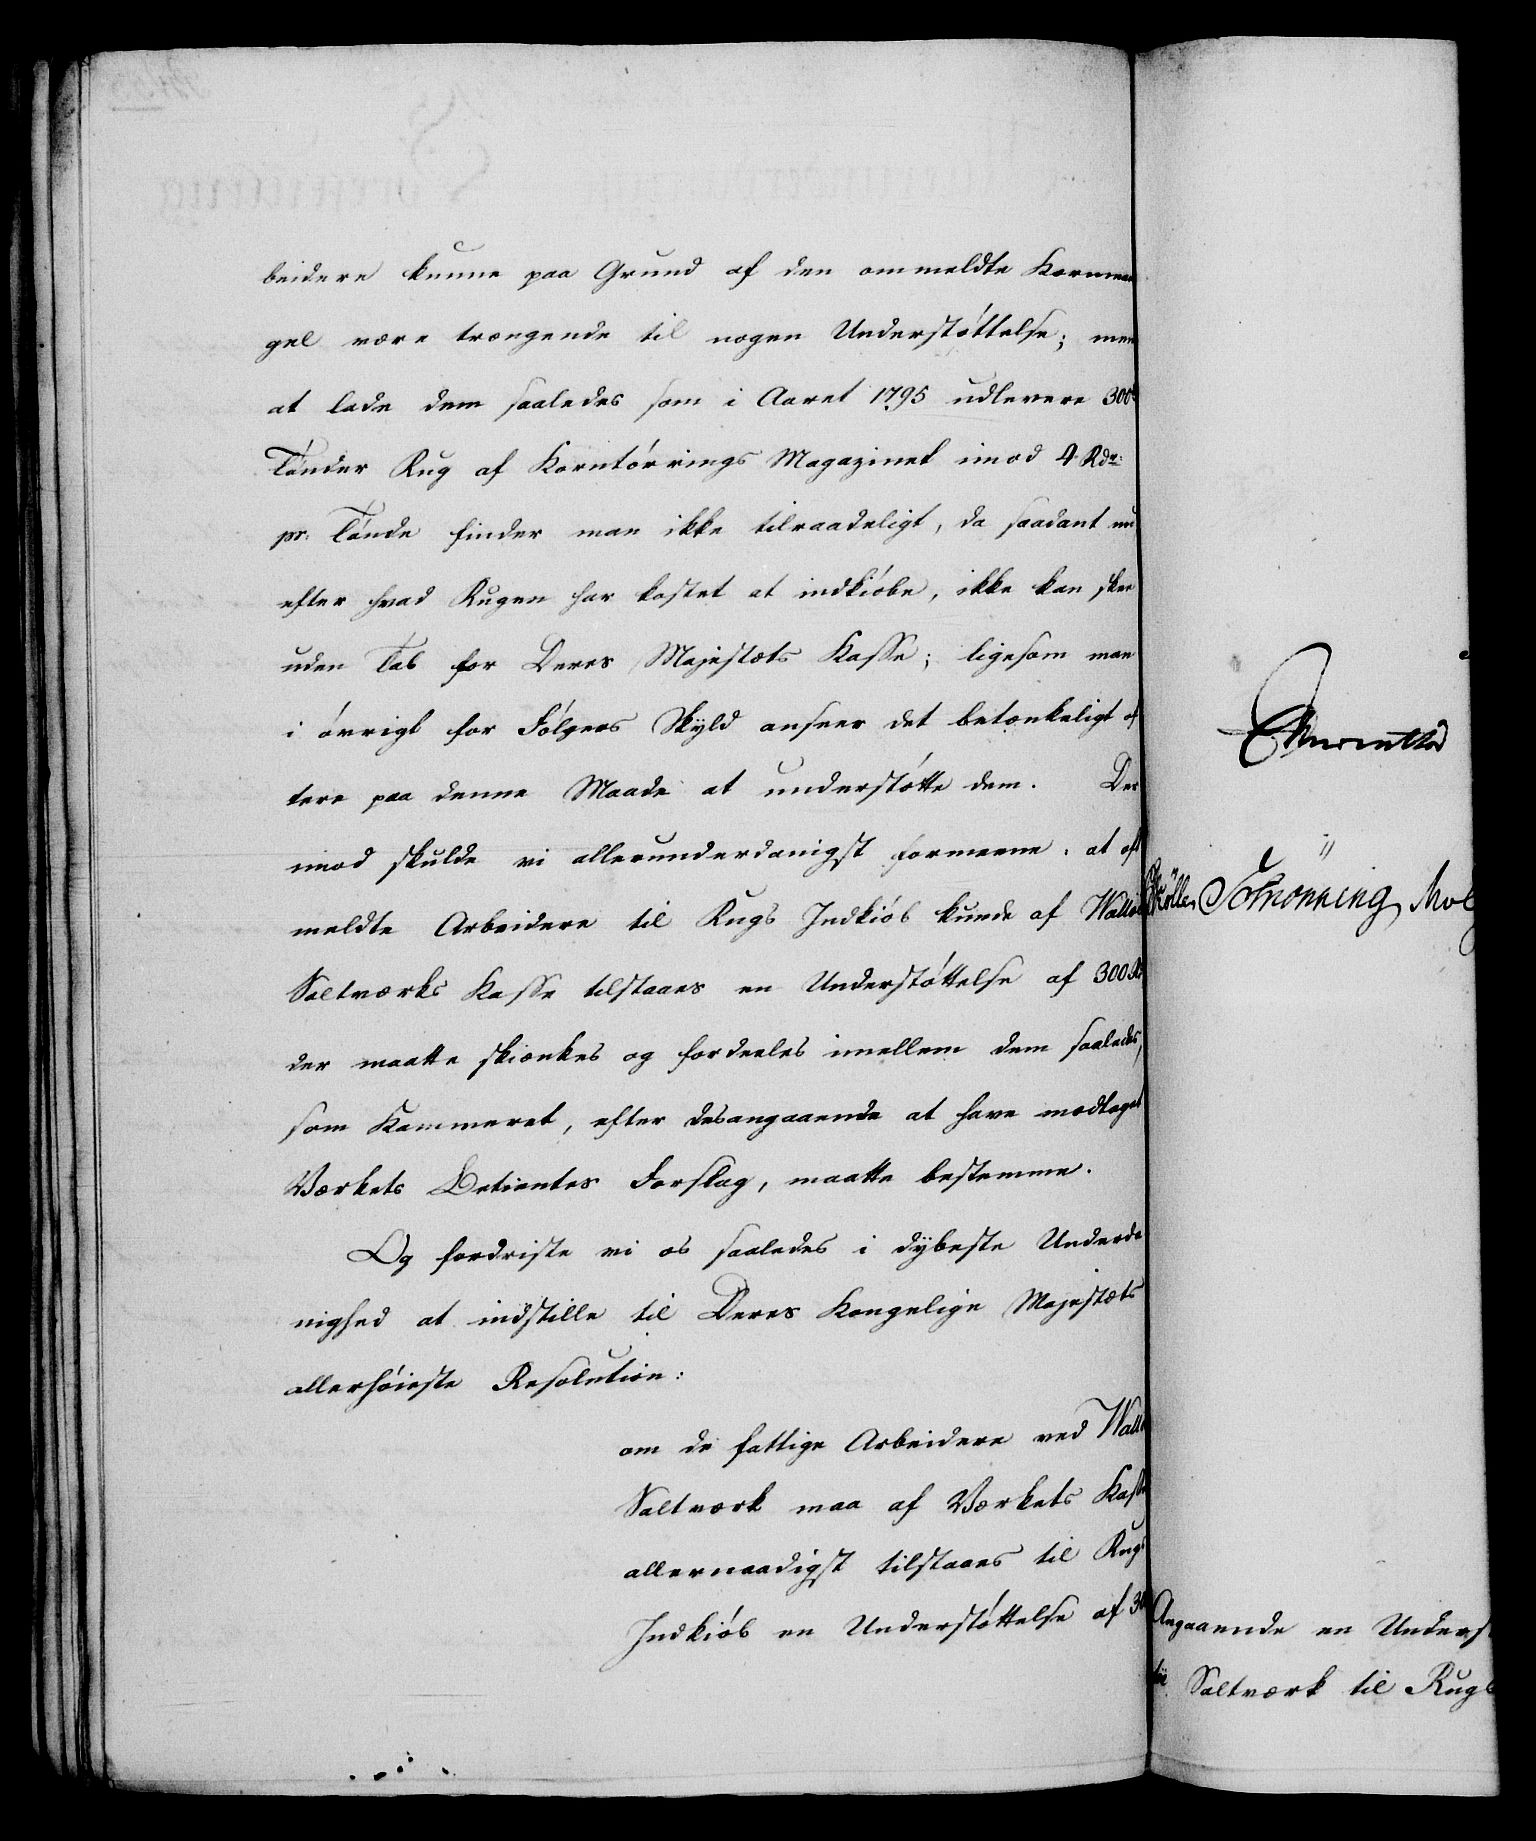 beidere kunne paa Grund af den ommeldte Kornman
gel være trængende til nogen Understøttelse; men
at lade dem saaledes som i Aaret 1795 udlevere 300de
Tønder Rug af Korntørrings Magazinet imod 4 Rdr:
pr: Tønde finder man ikke tilraadeligt, da saadant nu
efter hvad Rugen har kostet at indkiøbe, ikke kan skee
uden Tab for Deres Majestæts Kasse; ligesom man
i øvrigt for Følgens Skyld anseer det betænkeligt of
tere paa denne Maade at understøtte dem. Der
imod skulde vi allerunderdanigst formeene, at oft
meldte Arbeidere til Rugs Indkiøb kunde af Walløe
Saltværks Kasse tilstaaes en Understøttelse af 300 Rd
der maatte skiænkes og fordeeles imellem dem saaledes,
som Kammeret, efter desangaaende at have modtaget
Værkets Betientes Forslag, maatte bestemme.
Og fordriste vi os saaledes i dybeste Underda
nighed at indstille til Deres Kongelige Majestæts
allerhøieste Resolution:
om de fattige Arbeidere ved Wallø
Saltværk maa af Værkets Kasse
allernaadigst tilstaaes til Rugs
Indkiøb en Understøttelse af 30
Schønning
Angaaende en Underst
Saltværk til Rug